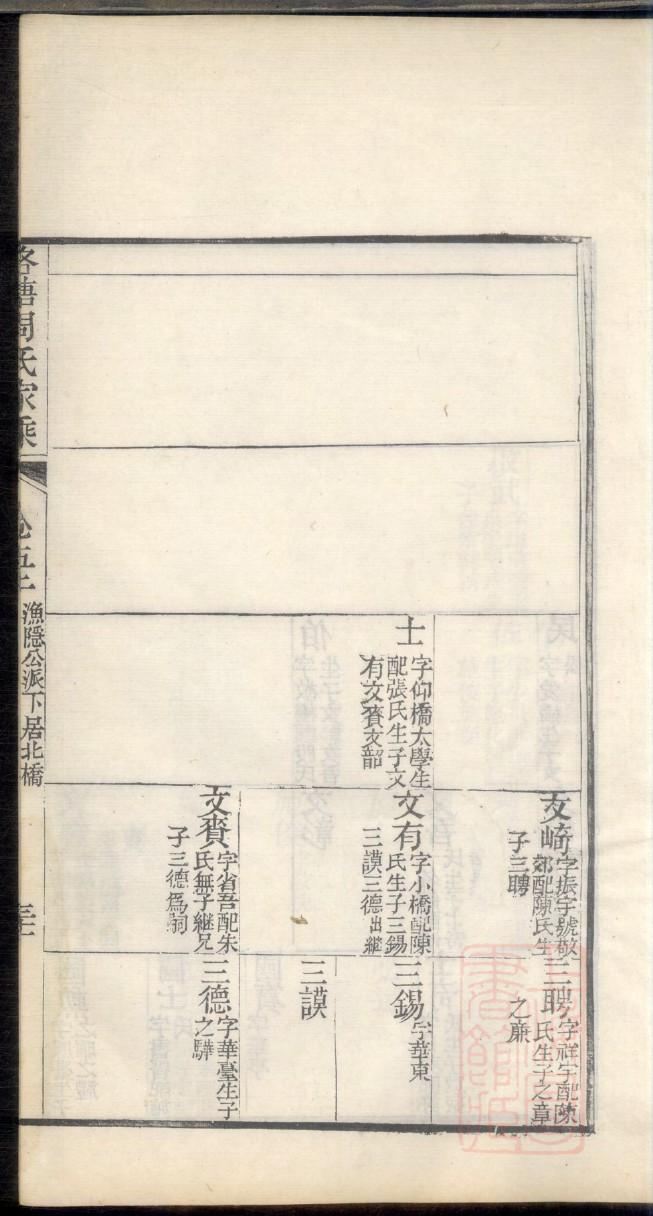 士
字仰橋太學生
配張氏生子文
有文賚文韶
文崎
字振宇號敬
郊配陳氏生
子三聘
文有
字小橋配陳
氏生子三錫
三謨三德出繼
文賚
字省吾配朱
氏無子繼兄
子三德爲嗣
三聘
字祥宇配陳
氏生子之章
之廉
三錫
字華東
三謨
三德
字華臺生子
之驊
塘周氏家乘
漁隱公派下居北橋